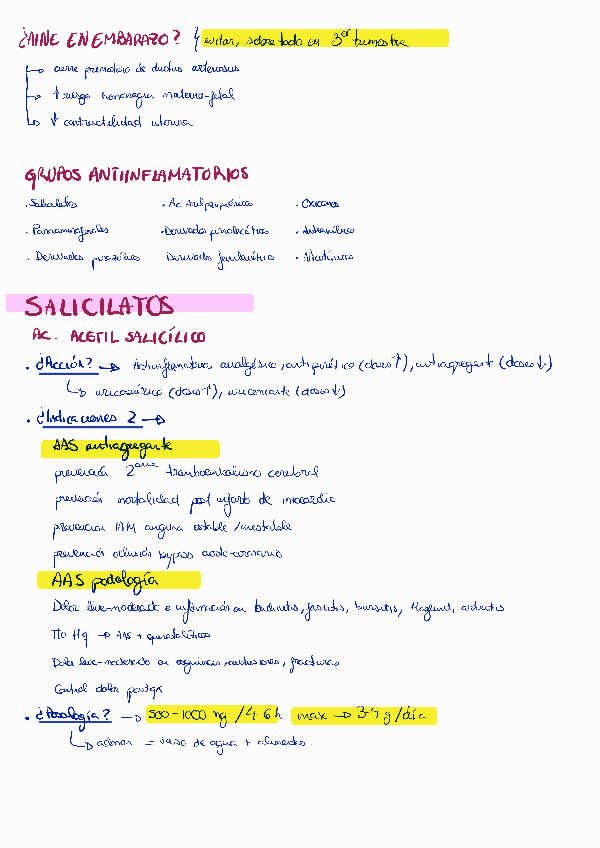 ¿AINE EN EMBARAZO? { evitar, sobre todo en 3er trimestre
→ cierre prematuro de ductus arteriosus
→ ↑ riesgo hemorragia materno-fetal
→ ↓ contractilidad uterina
GRUPOS ANTIINFLAMATORIOS
· Salicilatos · Ac. Arilpropiónico · Oxicanos
· Paraaminofenoles · Derivados · Antranílico
· Derivados pirazólicos · Derivados · Nicotínico
SALICILATOS
AC. ACETIL SALICÍLICO
· ¿Acción? → Antiinflamatoria analgésico, antipirético (dosis ↑), antiagregant (doses ↓)
↳ uricosúrico (dosis ↑), (dosis ↓)
· ¿Indicaciones? →
AAS antiagregante
prevención 2aria tromboembolismo cerebral
prevención mortalidad post infarto de miocardio
prevencion IAM angina estable / inestable
prevención oclusión bypass aorto-coronario
AAS podología
Dolor leve-moderado e inflamación en tendinitis, fascitis, bursitis, Haglund, artritis
Tto Hq → AAS + queratolíticos
Dolor leve-moderado en esguinces, contusiones, fracturas
Control dolor postqx
· ¿Posología? → 500-1000 mg / 4-6 h max → 3-4 g/día
↳ = vaso de agua + alimentos.